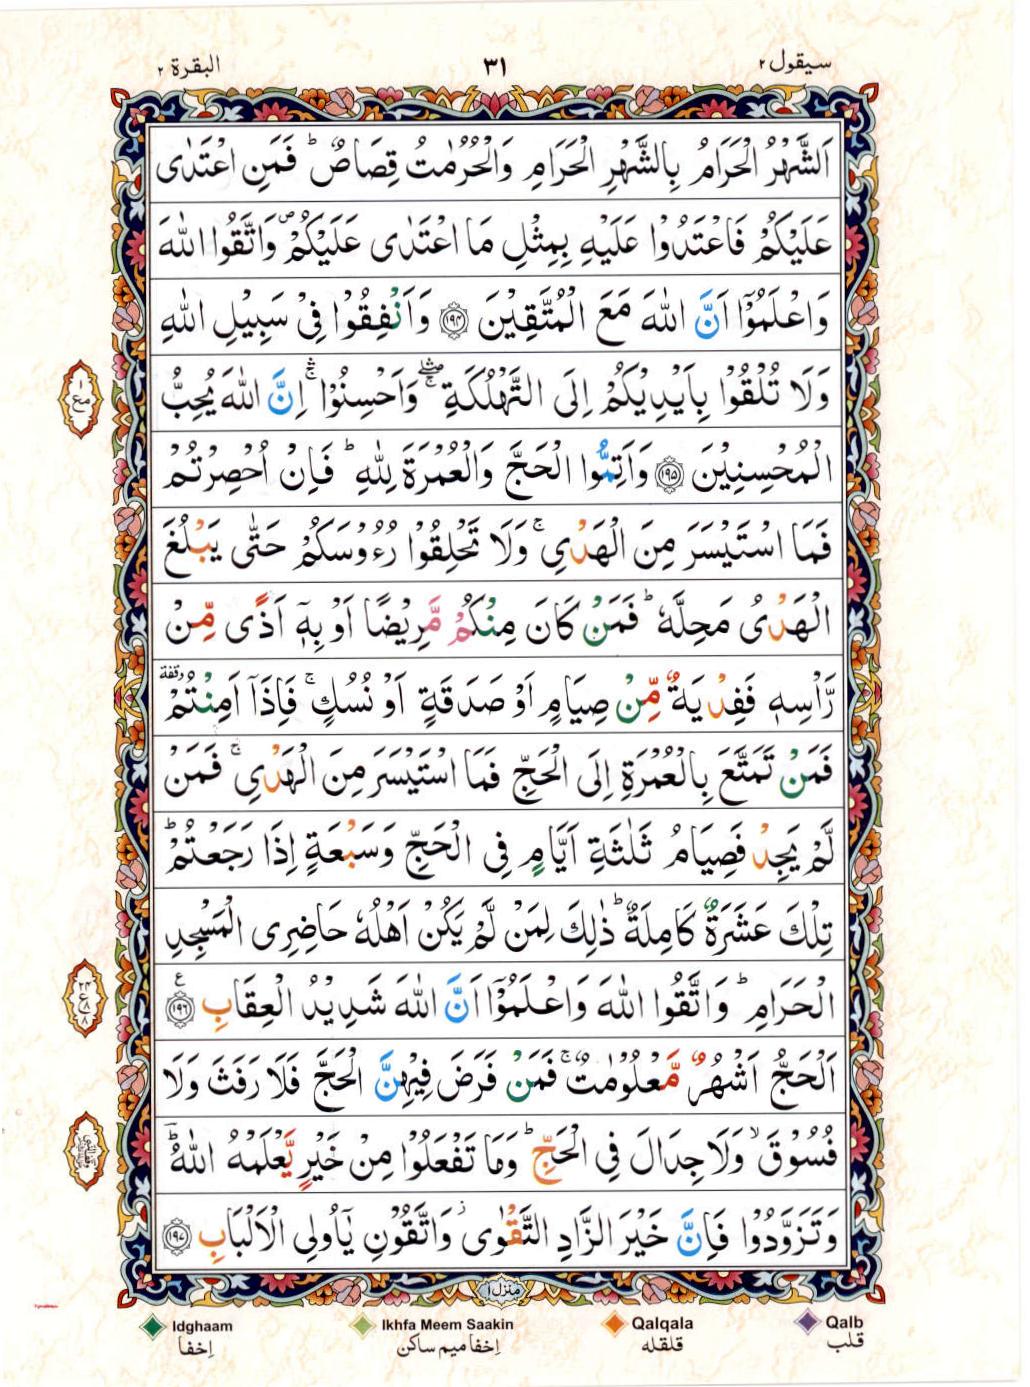 سيقول ٢ ٣١ البقرة ٢
اَلشَّهْرُ الْحَرَامُ بِالشَّهْرِ الْحَرَامِ وَالْحُرُمٰتُ قِصَاصٌ ؕ فَمَنِ اعْتَدٰى
عَلَيْكُمْ فَاعْتَدُوْا عَلَيْهِ بِمِثْلِ مَا اعْتَدٰى عَلَيْكُمْ ۪ وَاتَّقُوا اللّٰهَ
وَاعْلَمُوْۤا اَنَّ اللّٰهَ مَعَ الْمُتَّقِيْنَ ﴿۱۹۴﴾ وَاَنْفِقُوْا فِىْ سَبِيْلِ اللّٰهِ
وَلَا تُلْقُوْا بِاَيْدِيْكُمْ اِلَى التَّهْلُكَةِ ۖۛۚ وَاَحْسِنُوْا ۛۚ اِنَّ اللّٰهَ يُحِبُّ
مع ١
الْمُحْسِنِيْنَ ﴿۱۹۵﴾ وَاَتِمُّوا الْحَجَّ وَالْعُمْرَةَ لِلّٰهِ ؕ فَاِنْ اُحْصِرْتُمْ
فَمَا اسْتَيْسَرَ مِنَ الْهَدْىِ ۚ وَلَا تَحْلِقُوْا رُءُوْسَكُمْ حَتّٰى يَبْلُغَ
الْهَدْىُ مَحِلَّهٗ ؕ فَمَنْ كَانَ مِنْكُمْ مَّرِيْضًا اَوْ بِهٖۤ اَذًى مِّنْ
رَّاْسِهٖ فَفِدْيَةٌ مِّنْ صِيَامٍ اَوْ صَدَقَةٍ اَوْ نُسُكٍ ۚ فَاِذَاۤ اَمِنْتُمْ وقفة
فَمَنْ تَمَتَّعَ بِالْعُمْرَةِ اِلَى الْحَجِّ فَمَا اسْتَيْسَرَ مِنَ الْهَدْىِ ۚ فَمَنْ
لَّمْ يَجِدْ فَصِيَامُ ثَلٰثَةِ اَيَّامٍ فِى الْحَجِّ وَسَبْعَةٍ اِذَا رَجَعْتُمْ ؕ
تِلْكَ عَشَرَةٌ كَامِلَةٌ ؕ ذٰلِكَ لِمَنْ لَّمْ يَكُنْ اَهْلُهٗ حَاضِرِى الْمَسْجِدِ
الْحَرَامِ ؕ وَاتَّقُوا اللّٰهَ وَاعْلَمُوْۤا اَنَّ اللّٰهَ شَدِيْدُ الْعِقَابِ ﴿۱۹۶﴾ ع
اَلْحَجُّ اَشْهُرٌ مَّعْلُوْمٰتٌ ۚ فَمَنْ فَرَضَ فِيْهِنَّ الْحَجَّ فَلَا رَفَثَ وَلَا
فُسُوْقَ ۙ وَلَا جِدَالَ فِى الْحَجِّ ؕ وَمَا تَفْعَلُوْا مِنْ خَيْرٍ يَّعْلَمْهُ اللّٰهُ ؕ
وَتَزَوَّدُوْا فَاِنَّ خَيْرَ الزَّادِ التَّقْوٰى ۫ وَاتَّقُوْنِ يٰۤاُولِى الْاَلْبَابِ ﴿۱۹۷﴾
منزل ١
Idghaam Ikhfa Meem Saakin Qalqala Qalb
إخفا إخفا ميم ساكن قلقله قلب